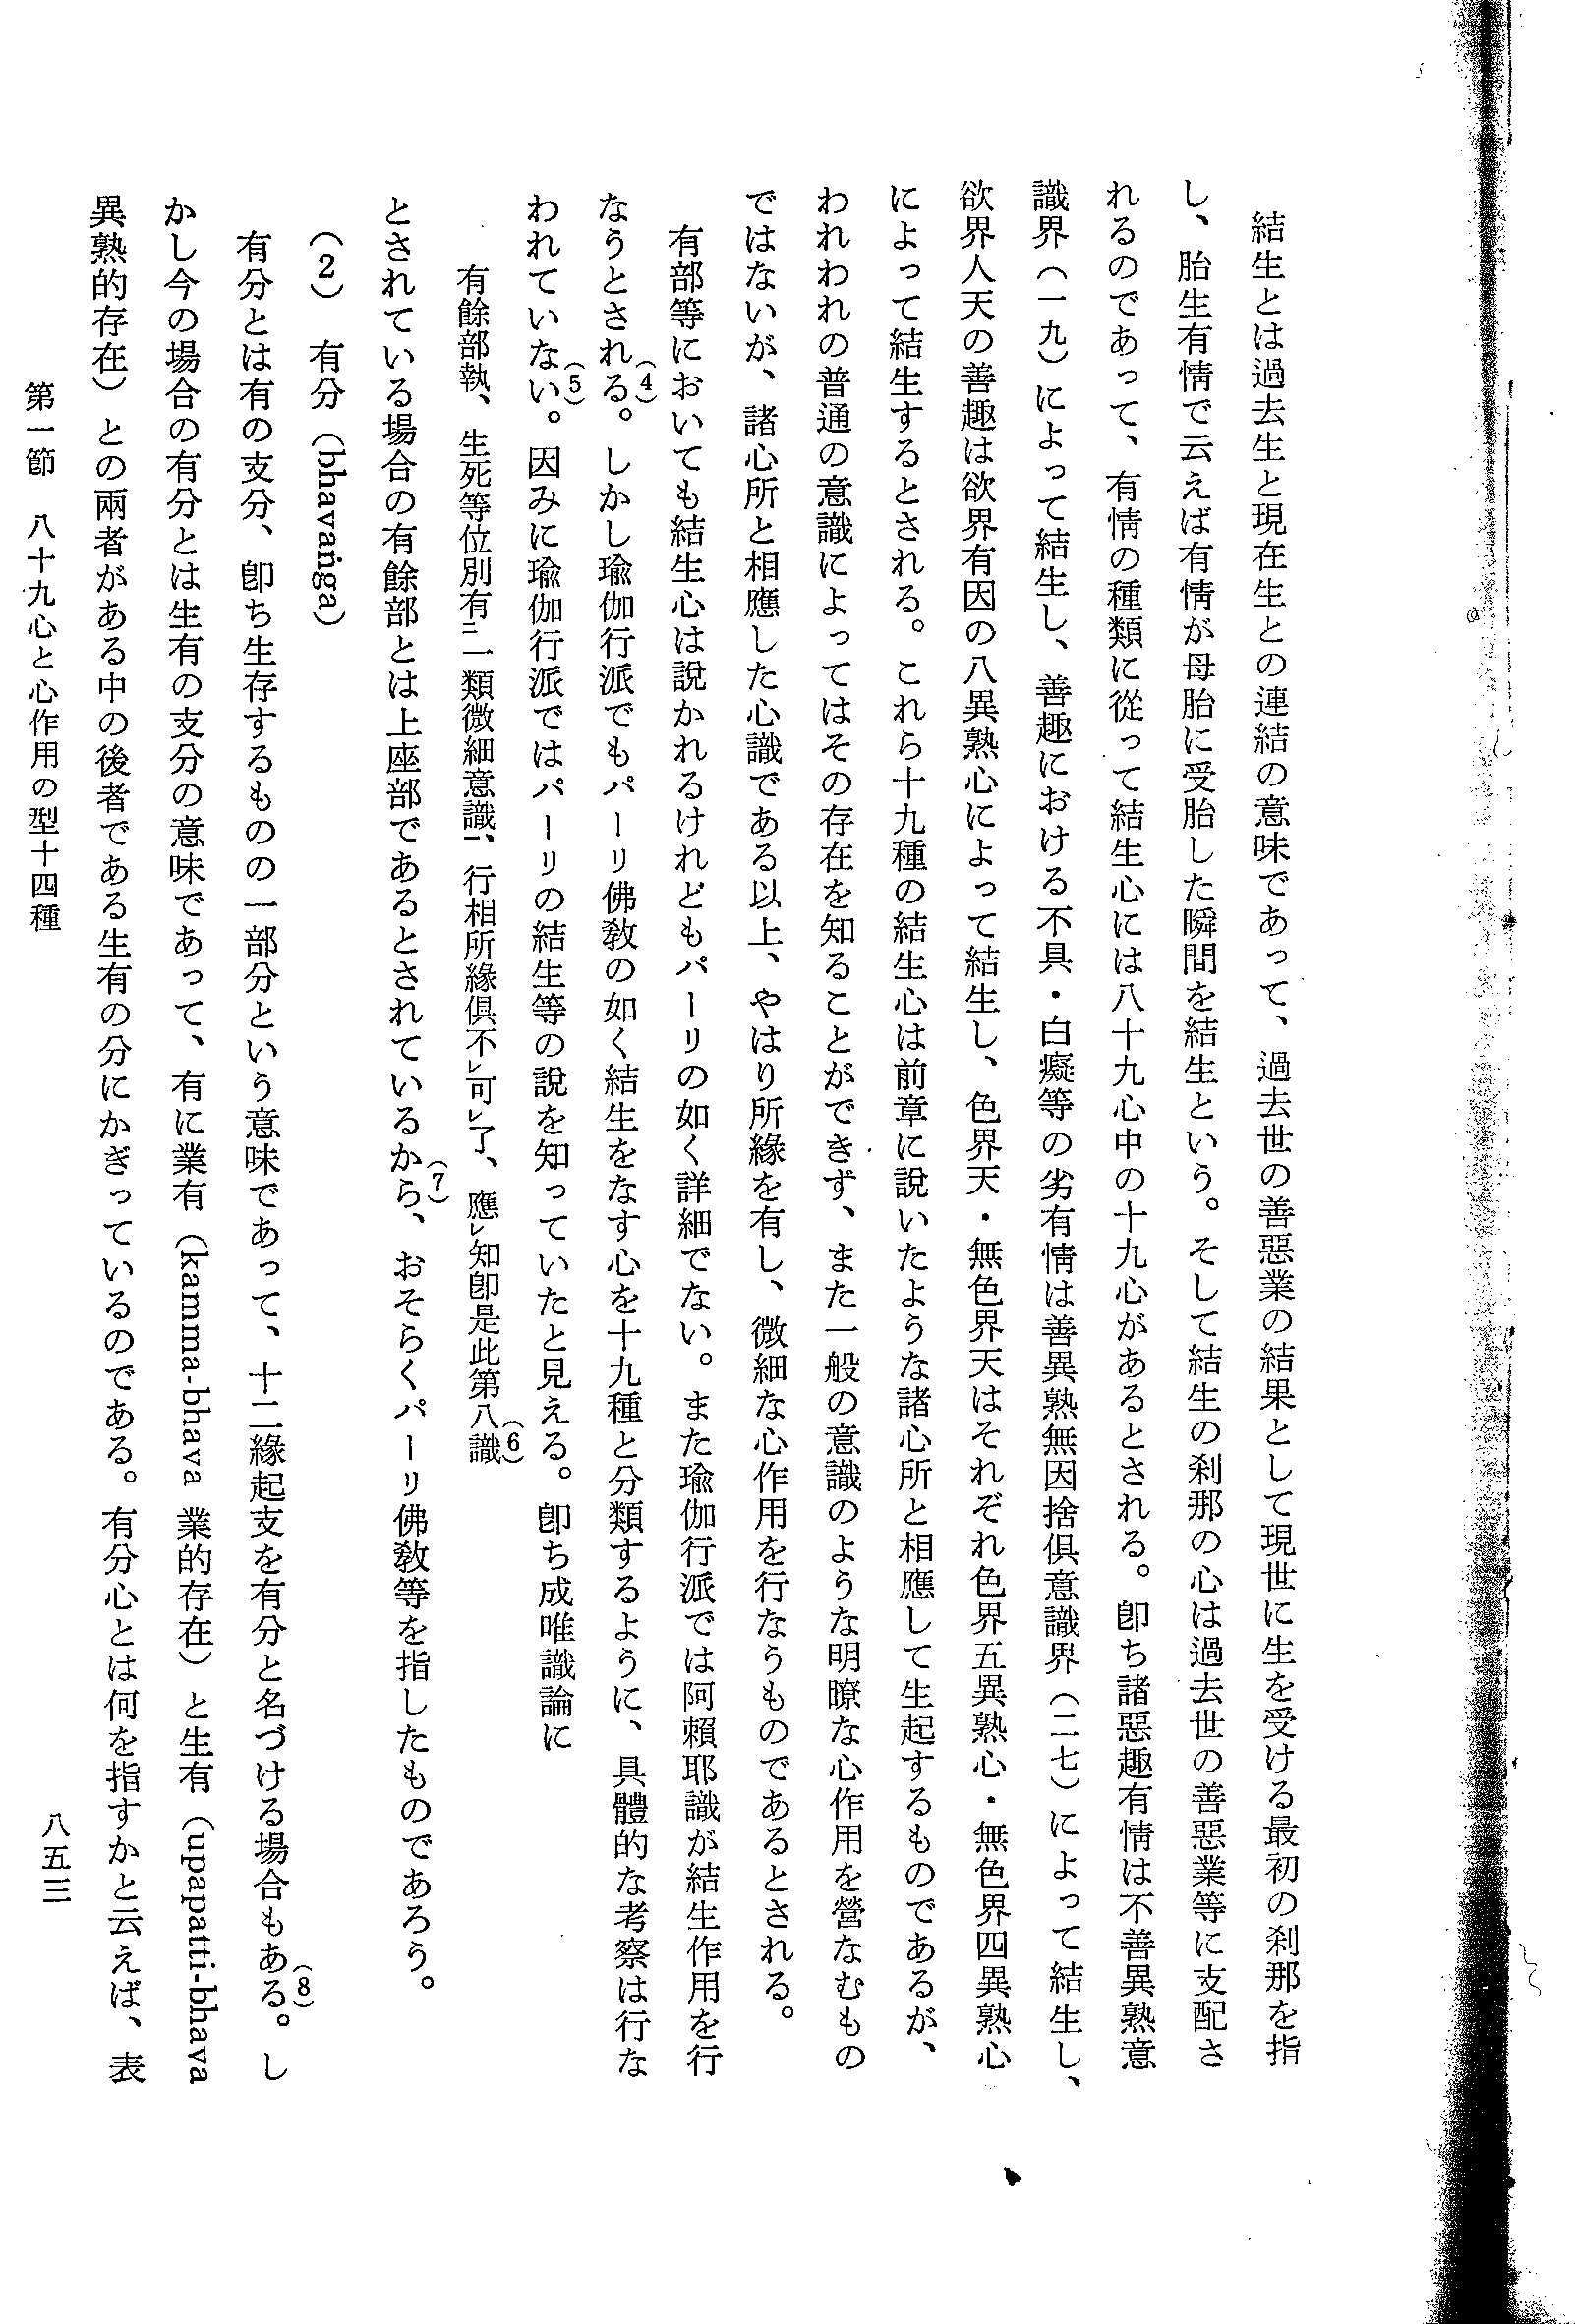 結生とは過去生と現在生との連結の意味であって、過去世の善惡業の結果として現世に生を受ける最初の刹那を指
し、胎生有情で云えば有情が母胎に受胎した瞬間を結生という。そして結生の刹那の心は過去世の善惡業等に支配さ
れるのであって、有情の種類に從って結生心には八十九心中の十九心があるとされる。卽ち諸惡趣有情は不善異熟意
識界（一九）によって結生し、善趣における不具・白癡等の劣有情は善異熟無因捨俱意識界（二七）によって結生し、
欲界人天の善趣は欲界有因の八異熟心によって結生し、色界天・無色界天はそれぞれ色界五異熟心・無色界四異熟心
によって結生するとされる。これら十九種の結生心は前章に說いたような諸心所と相應して生起するものであるが、
われわれの普通の意識によってはその存在を知ることができず、また一般の意識のような明瞭な心作用を營なむもの
ではないが、諸心所と相應した心識である以上、やはり所緣を有し、微細な心作用を行なうものであるとされる。
有部等においても結生心は說かれるけれどもパーリの如く詳細でない。また瑜伽行派では阿賴耶識が結生作用を行
なうとされる。（4）しかし瑜伽行派でもパーリ佛敎の如く結生をなす心を十九種と分類するように、具體的な考察は行な
われていない。（5）因みに瑜伽行派ではパーリの結生等の說を知っていたと見える。卽ち成唯識論に
有餘部執、生死等位別有㆓一類微細意識㆒、行相所緣俱不㆑可㆑了、應㆑知卽是此第八識（6）
とされている場合の有餘部とは上座部であるとされているから、（7）おそらくパーリ佛敎等を指したものであろう。
（2）　有分（bhavaṅga）
有分とは有の支分、卽ち生存するものの一部分という意味であって、十二緣起支を有分と名づける場合もある。（8）し
かし今の場合の有分とは生有の支分の意味であって、有に業有（kamma-bhava 業的存在）と生有（upapatti-bhava
異熟的存在）との兩者がある中の後者である生有の分にかぎっているのである。有分心とは何を指すかと云えば、表
第一節　八十九心と心作用の型十四種
八五三